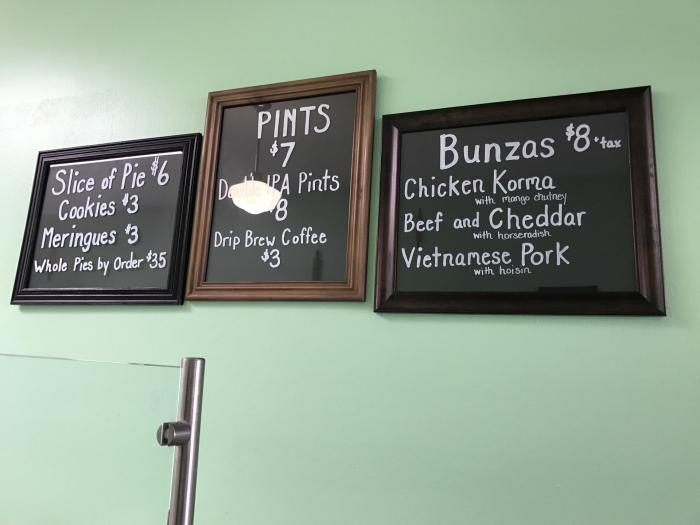 Slice of Pie $6
Cookies $3
Meringues $3
Whole Pies by Order $35
PINTS
$7
IPA Pints
$8
Drip Brew Coffee
$3
Bunzas $8 + tax
Chicken Korma
with mango chutney
Beef and Cheddar
with horseradish
Vietnamese Pork
with hoisin